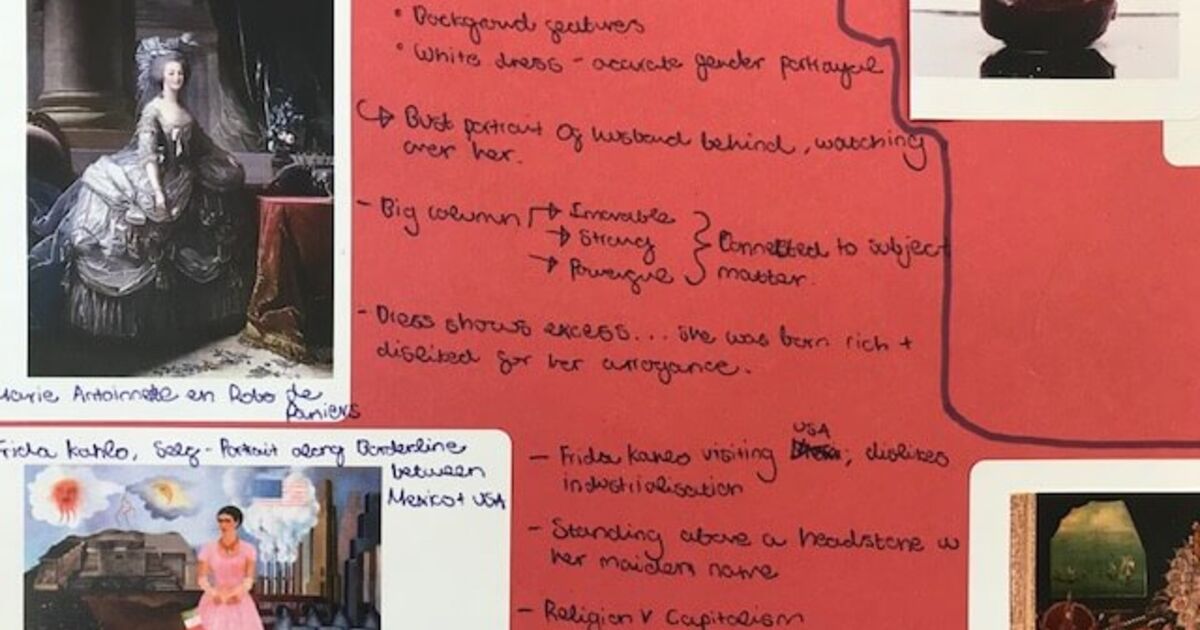 • Background features
• White dress - accurate gender portrayal
↳ Bust portrait of husband behind, watching
over her.
- Big column → Immovable
→ Strong
→ Powerful
} Connected to subject
matter.
- Dress shows excess... she was born rich +
disliked for her arrogance.
Marie Antoinette en Robo de
Paniers
Frida Kahlo, Self-Portrait along Borderline
between
Mexico + USA
- Frida Kahlo visiting USA; dislikes
industrialisation
- Standing above a headstone w
her maiden name
- Religion V Capitalism